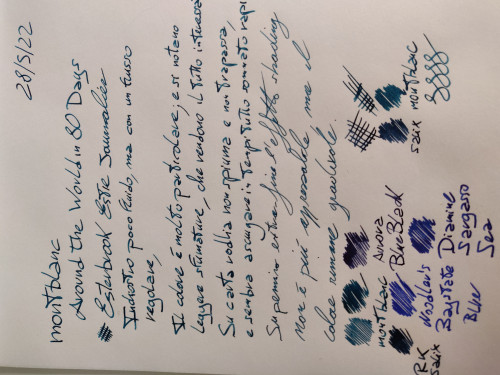 28/5/22
montblanc
Around the World in 80 Days
Esterbrook Estie Journaller
Inchiostro poco fluido, ma con un flusso
regolare,
Il colore è molto particolare, e si notano
leggere sfumature, che rendono il tutto interessa
Su carta rodhia non spiuma e non trapassa,
e sembra asciugare in tempi tutto sommato rapi
Superando extra-fine l'effetto shading
non è più apprezzabile, ma il
colore rimane gradevole.
montblanc
Sailx
Aurora
BlueBlack
montblanc
RK
Sailx
Noodler's
Baystate
Blue
Diamine
Sargasso
Sea